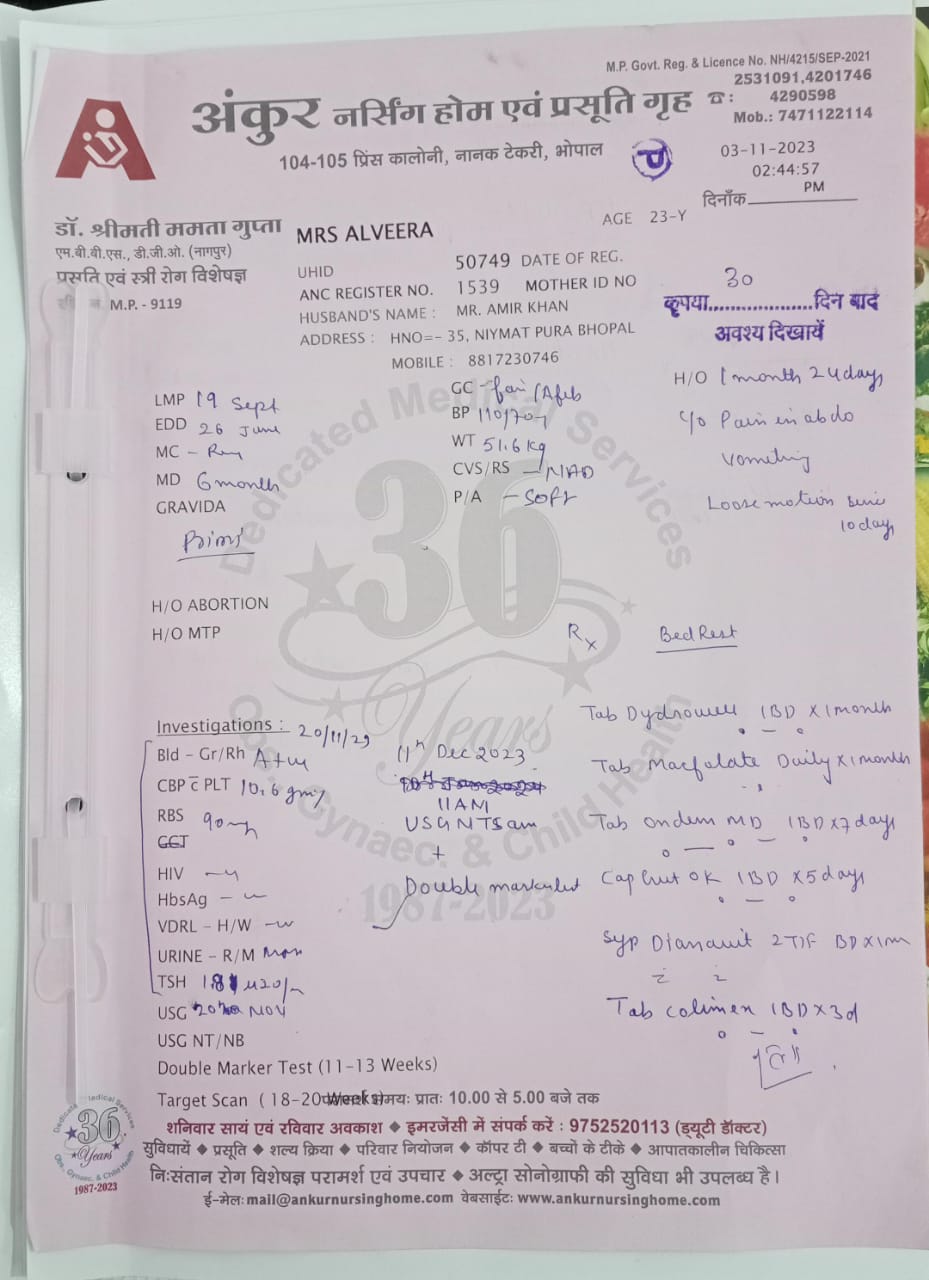 M.P. Govt. Reg. & Licence No. NH/4215/SEP-2021
2531091,4201746
4290598
Mob.: 7471122114
अंकुर नर्सिंग होम एवं प्रसूति गृह ☎:
104-105 प्रिंस कालोनी, नानक टेकरी, भोपाल
03-11-2023
02:44:57
PM
दिनाँक
डॉ. श्रीमती ममता गुप्ता
एम.बी.बी.एस., डी.जी.ओ. (नागपुर)
प्रसूति एवं स्त्री रोग विशेषज्ञ
M.P. - 9119
MRS ALVEERA
AGE 23-Y
UHID 50749 DATE OF REG.
ANC REGISTER NO. 1539 MOTHER ID NO
HUSBAND'S NAME : MR. AMIR KHAN
ADDRESS : HNO=- 35, NIYMAT PURA BHOPAL
MOBILE : 8817230746
30
कृपया..................दिन बाद
अवश्य दिखायें
LMP 19 Sept
EDD 26 June
MC -
MD 6 month
GRAVIDA
Primi
GC - fair/Afeb
BP 110/70
WT 51.6 kg
CVS/RS - NAD
P/A - SOFT
H/O 1 month 24 days
c/o Pain in abdo
Vometing
Loose motion
10 days
H/O ABORTION
H/O MTP
Rx Bed Rest
Investigations : 20/11/23
Bld - Gr/Rh A+ve
CBP c̄ PLT 10.6 gm%
RBS 90
GCT
HIV
HbsAg
VDRL - H/W
URINE - R/M
TSH
USG NOV
USG NT/NB
Double Marker Test (11-13 Weeks)
Target Scan ( 18-20 Weeks)
11th Dec 2023
11 AM
USG NT Scan
+
Double marker
Tab Dydrowell 1BD x 1 month
Tab Macfolate Daily x 1 month
Tab ondem MD 1BD x 7 days
Cap OK 1BD x 5 days
Syp 2 TSF BD x 1m
Tab colimex 1BD x 3d
समयः प्रातः 10.00 से 5.00 बजे तक
शनिवार सायं एवं रविवार अवकाश ◆ इमरजेंसी में संपर्क करें : 9752520113 (ड्यूटी डॉक्टर)
सुविधायें ◆ प्रसूति ◆ शल्य क्रिया ◆ परिवार नियोजन ◆ कॉपर टी ◆ बच्चों के टीके ◆ आपातकालीन चिकित्सा
निःसंतान रोग विशेषज्ञ परामर्श एवं उपचार ◆ अल्ट्रा सोनोग्राफी की सुविधा भी उपलब्ध है।
ई-मेलः mail@ankurnursinghome.com वेबसाईटः www.ankurnursinghome.com
Dedicated Medical Services
36
Years
Obs., Gynaec. & Child Health
1987-2023
Dedicated Medical Services
36
Years
Obs., Gynaec. & Child Health
1987-2023